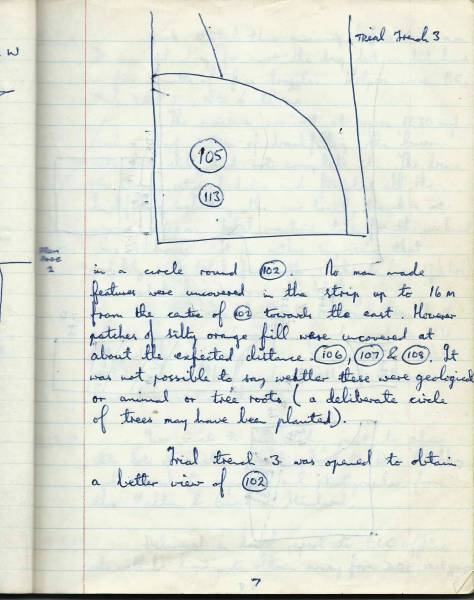 W
Trial Trench 3
105
113
in a circle round 102. No man made
features were uncovered in the strip up to 16m
from the centre of 102 towards the east. However
patches of silty orange fill were uncovered at
about the expected distance. 106, 107 & 109. It
was not possible to say wehtler these were geological
or animal or tree roots (a deliberate circle
of trees may have been planted).
Trial trench 3 was opened to obtain
a better view of 102
7